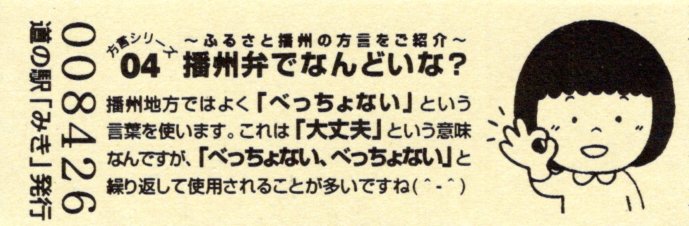 008426
道の駅「みき」発行
方言シリーズ
04
～ふるさと播州の方言をご紹介～
播州弁でなんどいな？
播州地方ではよく「べっちょない」という
言葉を使います。これは「大丈夫」という意味
なんですが、「べっちょない、べっちょない」と
繰り返して使用されることが多いですね(＾-＾)